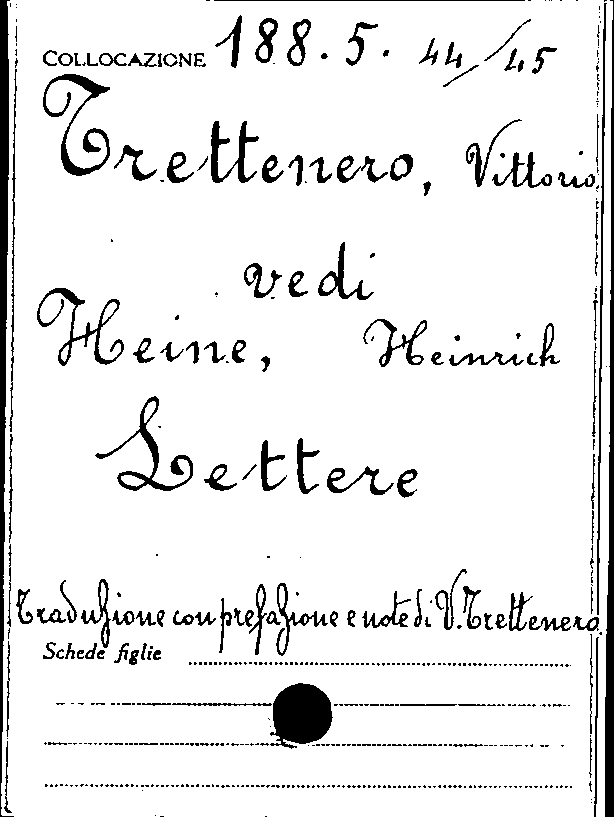 COLLOCAZIONE 188.5.44/45
Trettenero, Vittorio
vedi
Heine, Heinrich
Lettere
Traduzione con prefazione e note di V. Trettenero
Schede figlie